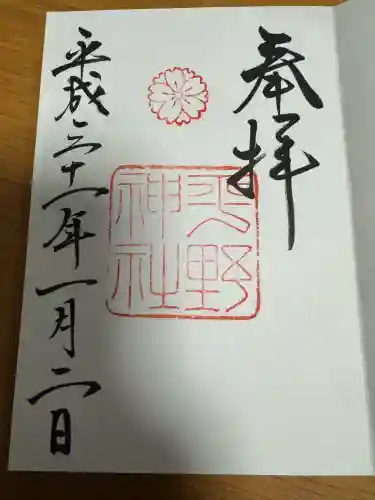 奉拝
平野
神社
平成三十一年一月二日